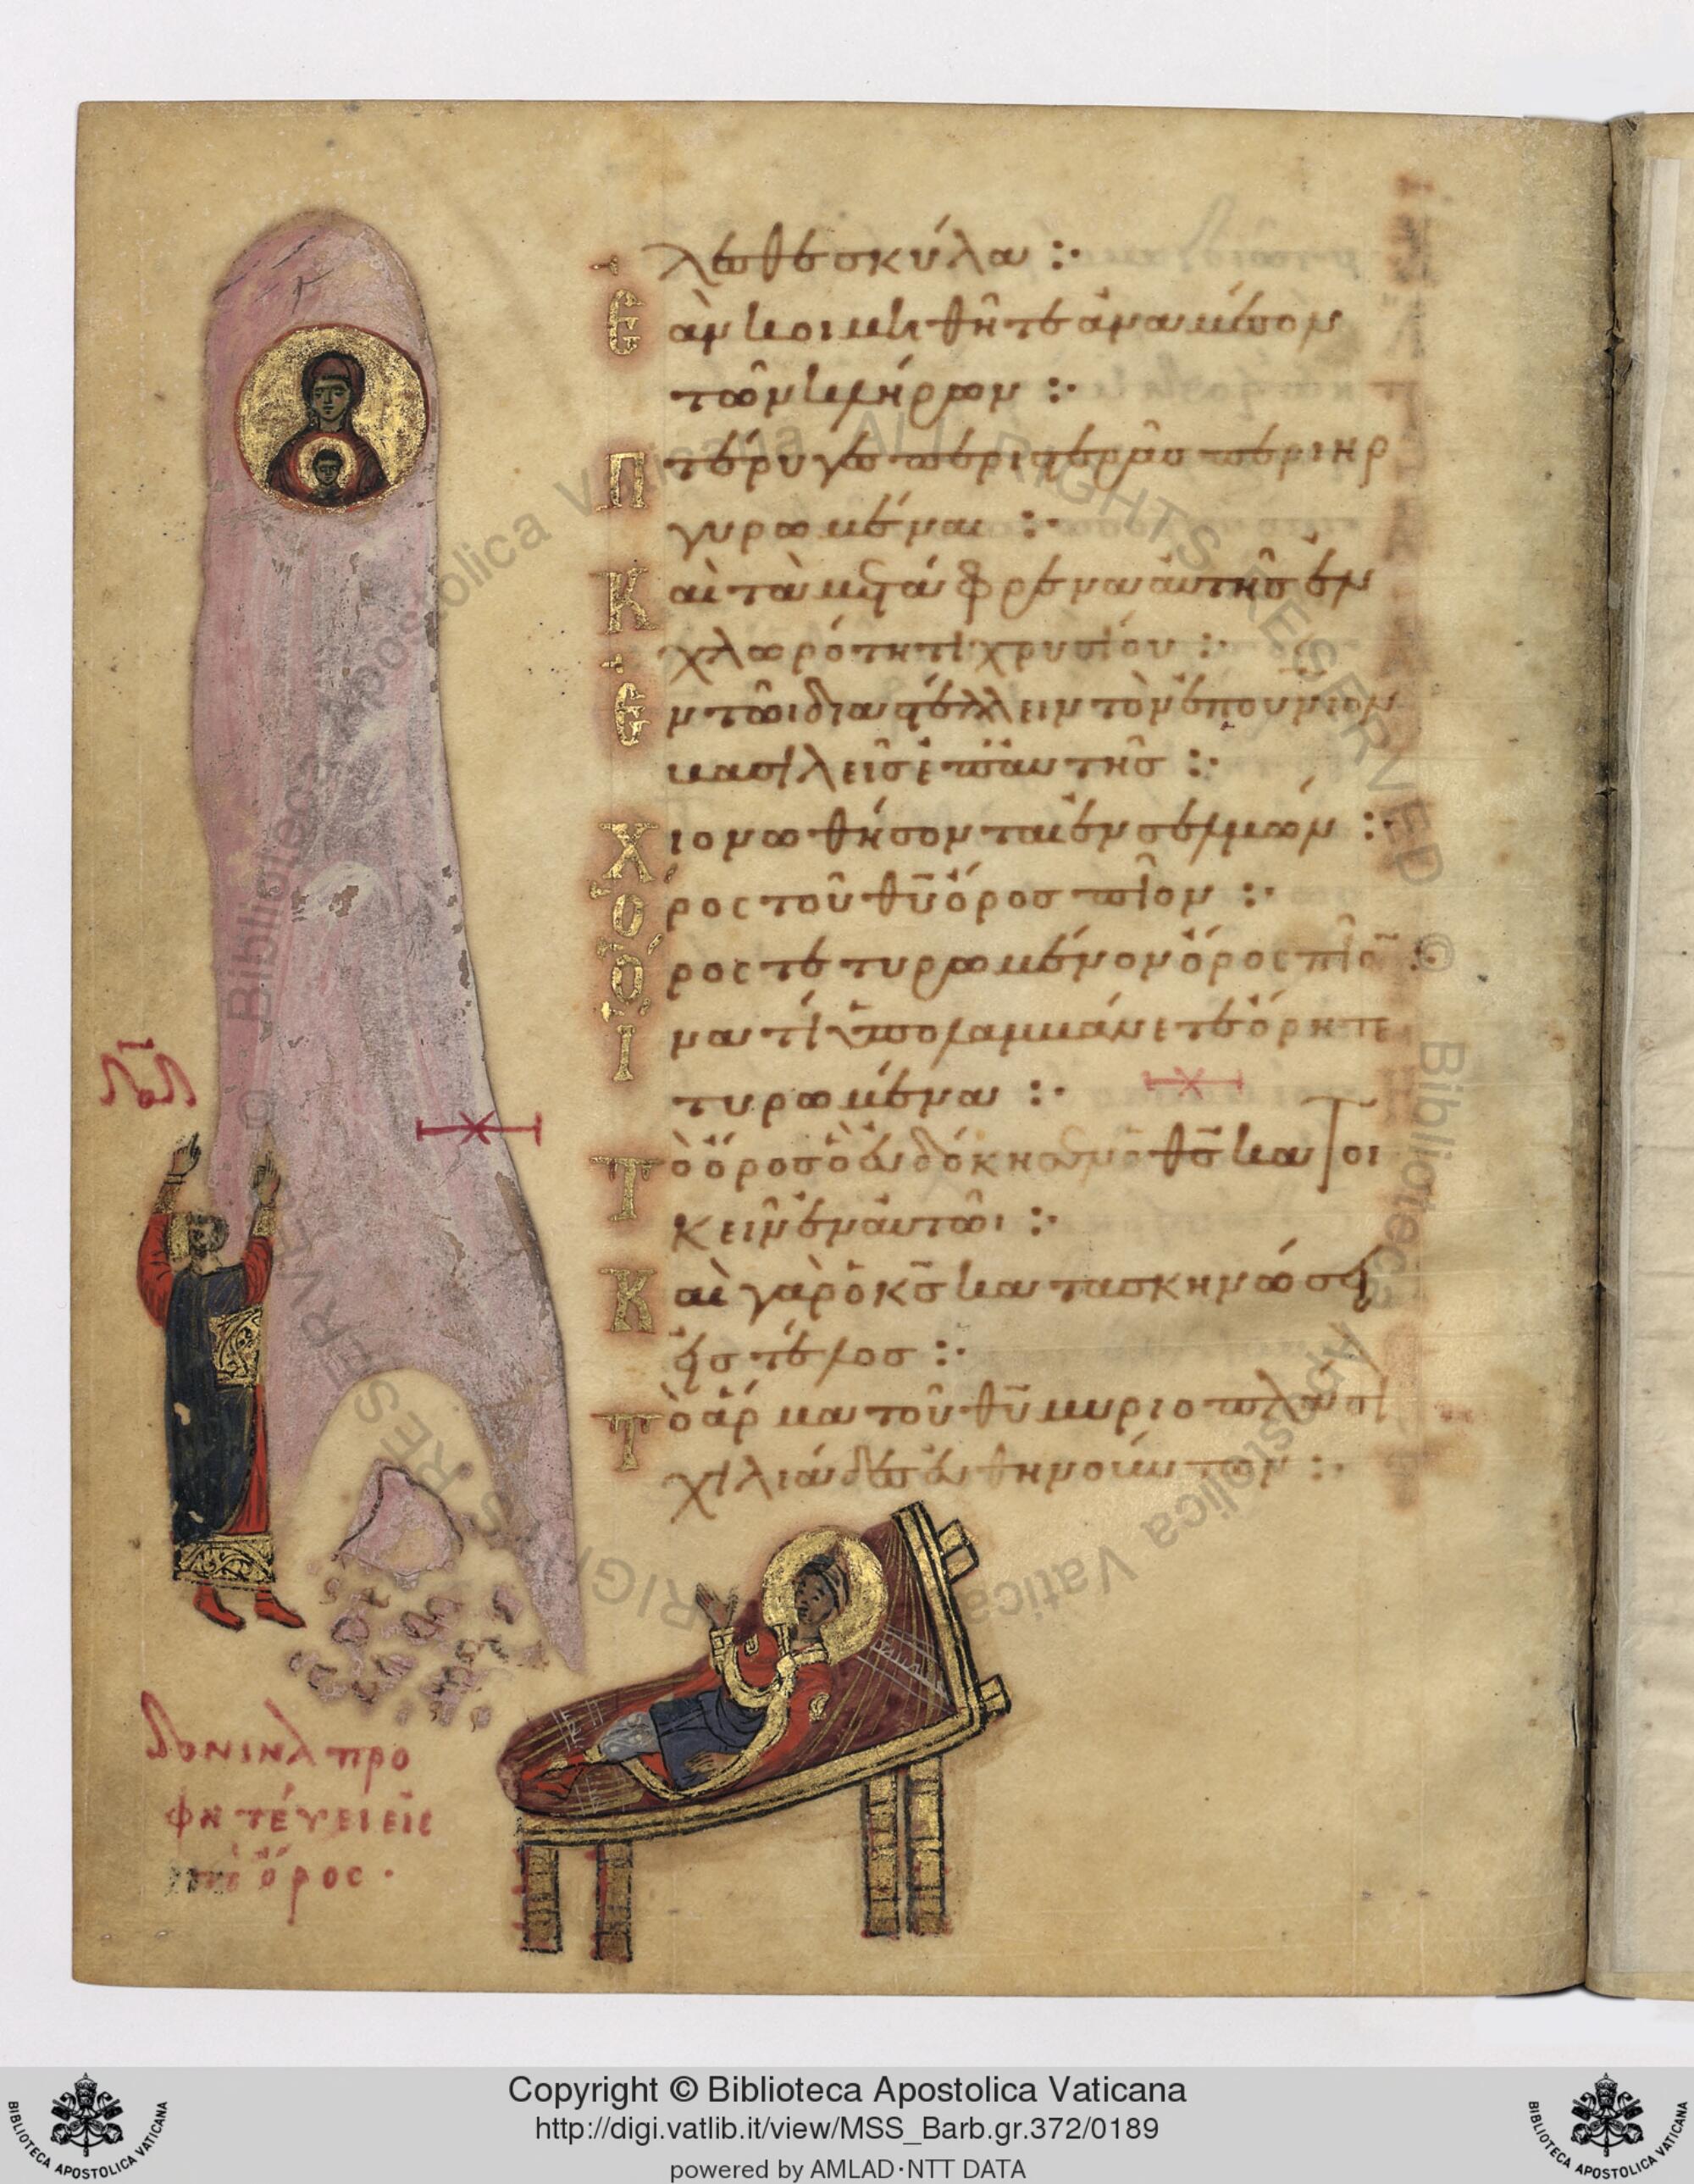 λέσθε σκύλα :·
Ἐὰν κοιμηθῆτε ἀνα μέσον
τῶν κλήρων :·
Πτέρυγες περιστερᾶς περιηρ
γυρωμέναι :·
Καὶ τὰ μετάφρενα αὐτῆς ἐν
χλωρότητι χρυσίου :·
Ἐν τῶι διαστέλλειν τὸν ἐπουνιον
βασιλεῖς ἐπ αὐτῆς :·
Χιονωθήσονται ἐν σελμών :·
Ὄρος τοῦ θῦ ὄρος πῖον :·
Ὄρος τετυρωμένον ὄρος πῖο :·
Ἱνατί ὑπολαμβάνετε ὄρη τε
τυρωμένα :·
Τὸ ὄρος ὃ εὐδόκησεν ὁ θς κατοι
κεῖν ἐν αὐτῶι :·
Καὶ γὰρ ὁ κς κατασκηνώσει
εἰς τέλος :·
Τὸ ἅρμα τοῦ θῦ μυριοπλάσι
χιλιάδες εὐθηνούντων :·
δανιηλ προ
φητέυει εἰς
τὸ ὄρος ·
© Biblioteca Apostolica Vaticana ALL RIGHTS RESERVED
© Biblioteca Apostolica Vaticana ALL RIGHTS RESERVED
BIBLIOTECA APOSTOLICA VATICANA
Copyright © Biblioteca Apostolica Vaticana
http://digi.vatlib.it/view/MSS_Barb.gr.372/0189
powered by AMLAD·NTT DATA
BIBLIOTECA APOSTOLICA VATICANA